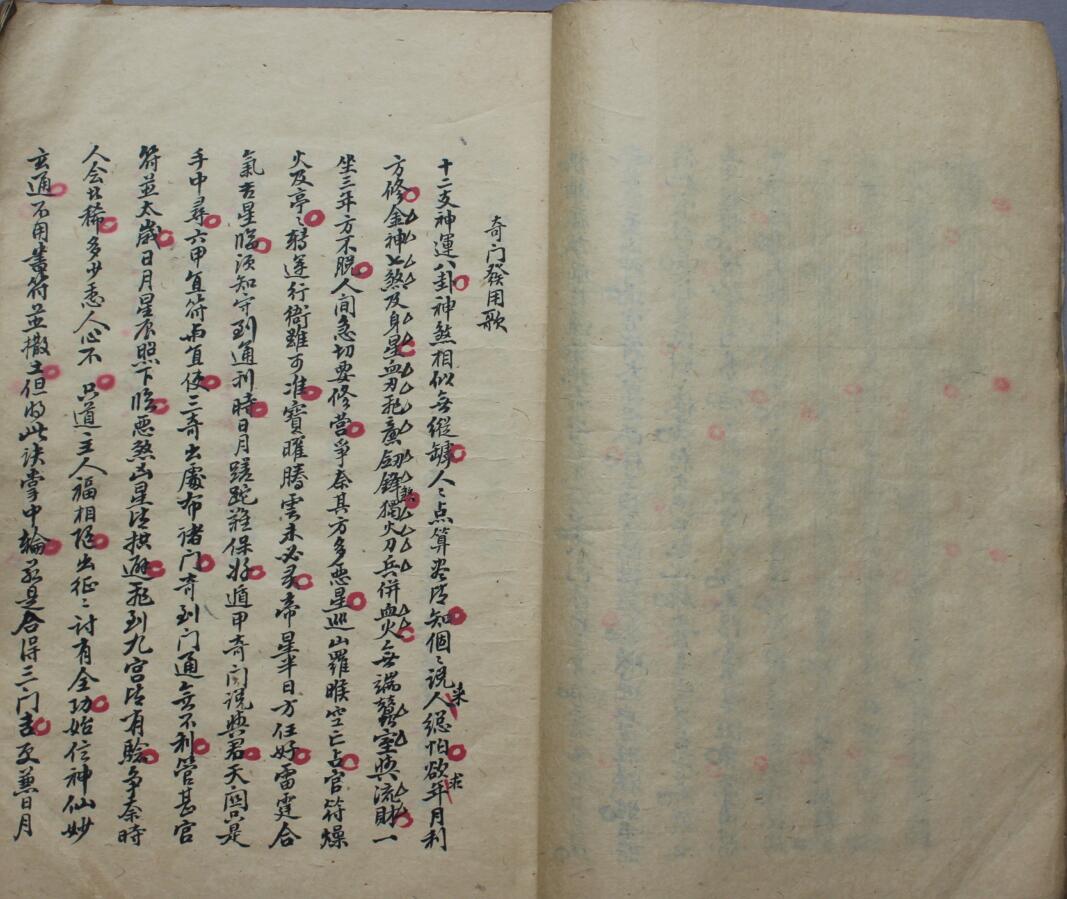 奇门發用歌
十二支神運八卦神煞相似無縱罅人〻点算尽皆知個〻説来人總怕欲求年月利
方修金神七煞及身星血刃飛廉劒鋒獨火刀兵併血火無端蠶室與流財一
坐三年方不脱人間急切要修营爭奈其方多悪星巡山羅睺空亡占官符燥
火及亭〻轉逆行衙雖可准寶曜騰雲未必灵帝星半日方任好雷霆合
氣吉星臨須知守到通利時日月蹉跎難保好遁甲奇门説與君天
手中尋六甲直符与直使三奇出處布诸门奇到门通無不利管甚官
符並太歲日月星辰照下臨悪煞凶星皆拱避飛到九宫皆有驗争奈時
人会者稀多少愚人心不 只道主人福相隨出征〻討有全功始信神仙妙
玄通不用書符並撒土但明此诀掌中輪若是合得三门吉更兼日月